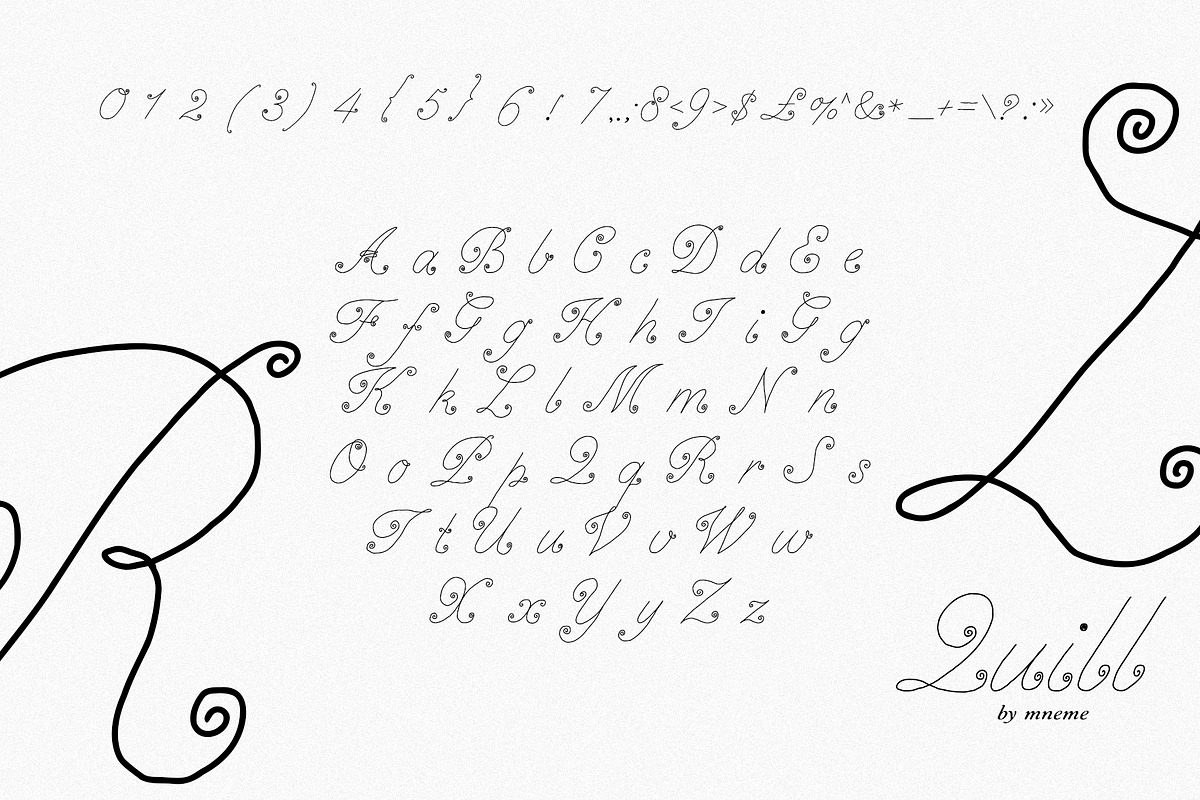 0 1 2 ( 3 ) 4 { 5 } 6 ! 7 , . , ; 8 < 9 > $ £ % ^ & * _ + = \ ? : »
A a B b C c D d E e
F f G g H h I i G g
K k L l M m N n
O o P p Q q R r S s
T t U u V v W w
X x Y y Z z
R
L
Quill
by mneme